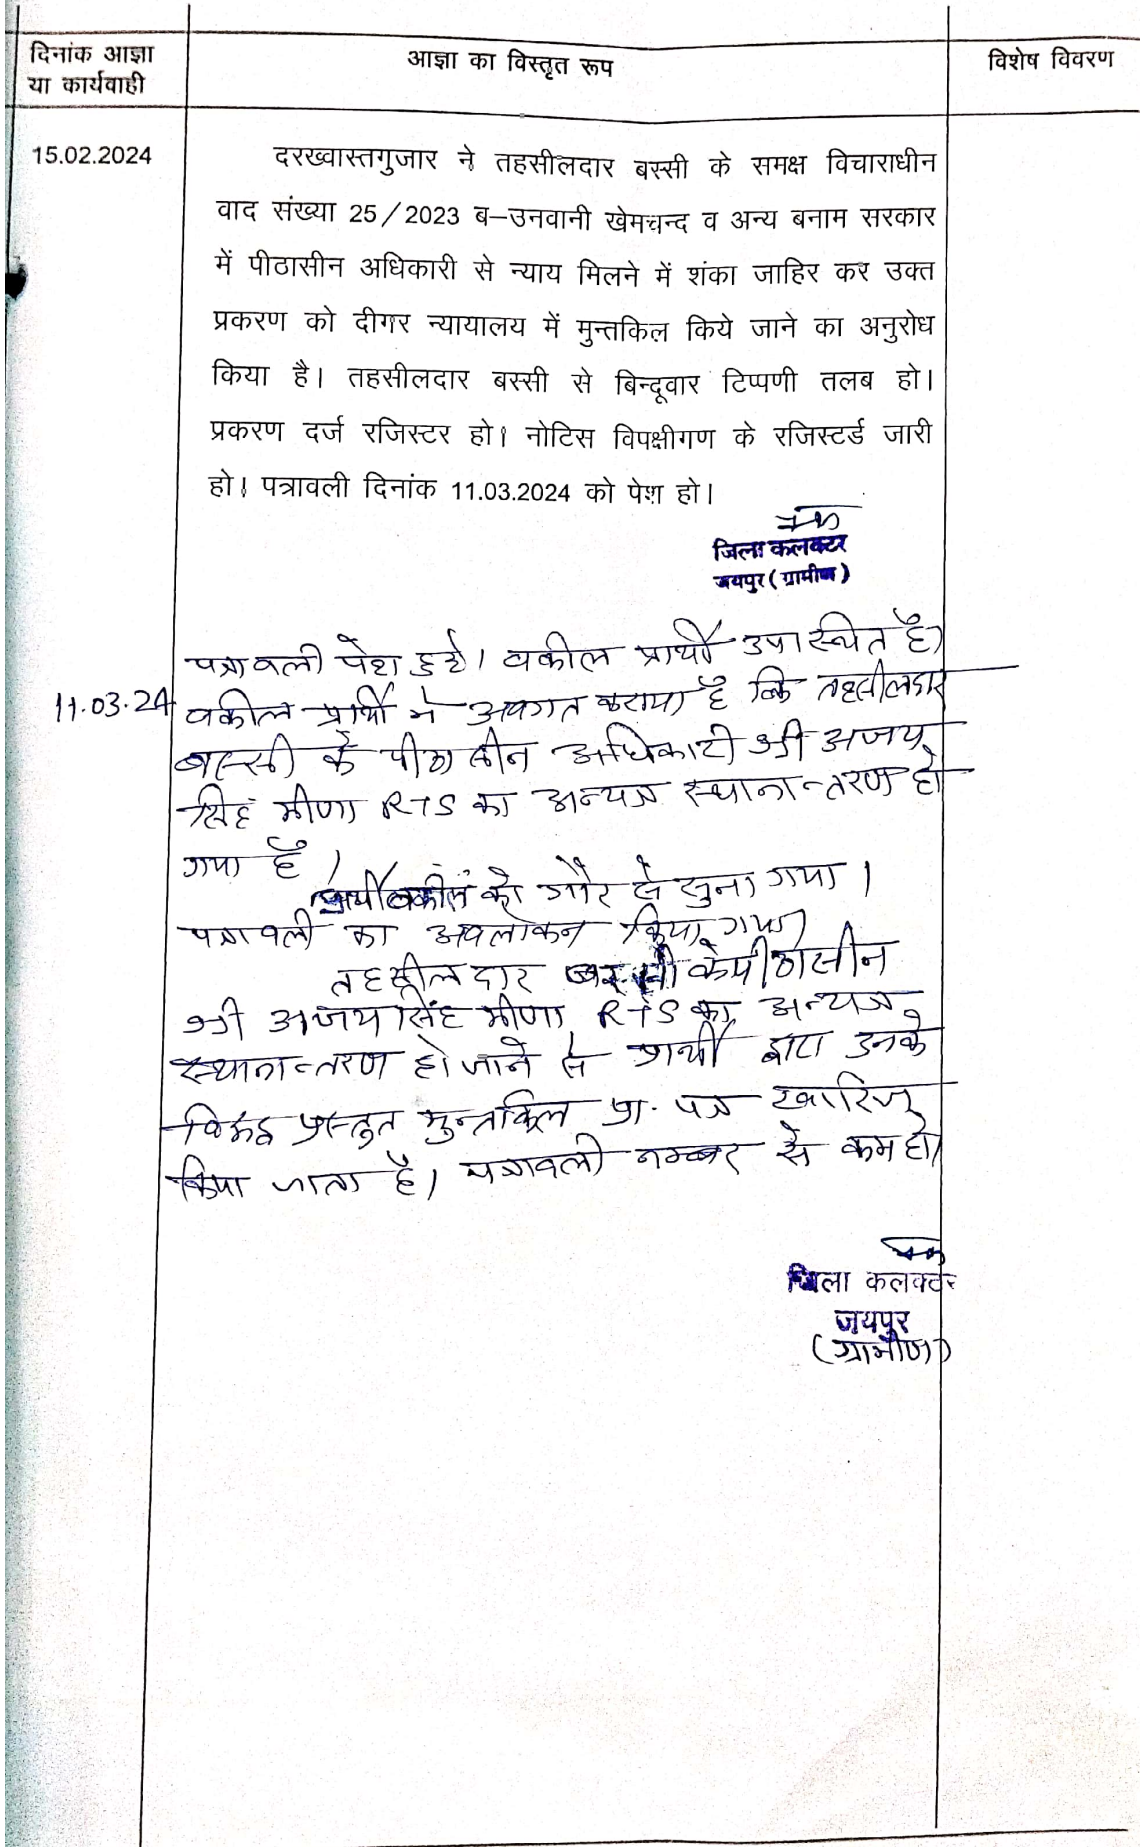 दिनांक आज्ञा
या कार्यवाही
आज्ञा का विस्तृत रूप
विशेष विवरण
15.02.2024
दरख्वास्तगुजार ने तहसीलदार बस्सी के समक्ष विचाराधीन
वाद संख्या 25/2023 ब–उनवानी खेमचन्द व अन्य बनाम सरकार
में पीठासीन अधिकारी से न्याय मिलने में शंका जाहिर कर उक्त
प्रकरण को दीगर न्यायालय में मुन्तकिल किये जाने का अनुरोध
किया है। तहसीलदार बस्सी से बिन्दूवार टिप्पणी तलब हो।
प्रकरण दर्ज रजिस्टर हो। नोटिस विपक्षीगण के रजिस्टर्ड जारी
हो। पत्रावली दिनांक 11.03.2024 को पेश हो।
जिला कलक्टर
जयपुर (ग्रामीण)
11.03.24
पत्रावली पेश हुई। वकील प्रार्थी उपस्थित है।
वकील प्रार्थी ने अवगत कराया है कि तहसीलदार
बस्सी के पीठासीन अधिकारी श्री अजय
सिंह मीणा RTS का अन्यत्र स्थानान्तरण हो
गया है।
प्रार्थी वकील को गौर से सुना गया।
पत्रावली का अवलोकन किया गया।
तहसीलदार बस्सी के पीठासीन
श्री अजय सिंह मीणा RTS का अन्यत्र
स्थानान्तरण हो जाने से प्रार्थी द्वारा उनके
विरूद्ध प्रस्तुत मुन्तकिल प्रा. पत्र खारिज
किया जाता है। पत्रावली नम्बर से कम हो।
जिला कलक्टर
जयपुर
(ग्रामीण)